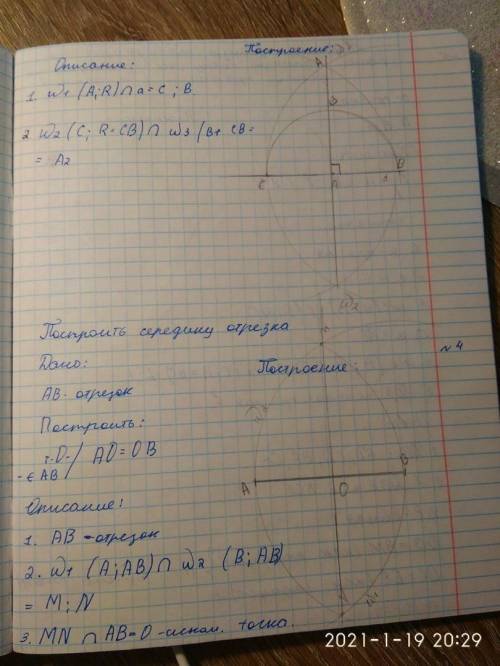 Описание:
Построение:
1. W1 (A; R) ∩ a = C; B.
2 W2 (C; R=CB) ∩ W3 (B; CB =
= A2
A
B
C
B
W2
Построить середину отрезка
№4
Дано:
Построение:
AB - отрезок
Построить:
т.О-/ AO = OB
- ∈ AB
A
B
O
Описание:
1. AB - отрезок
2. W1 (A; AB) ∩ W2 (B; AB)
= M; N
3. MN ∩ AB = O - иском. точка.
2021-1-19 20:29